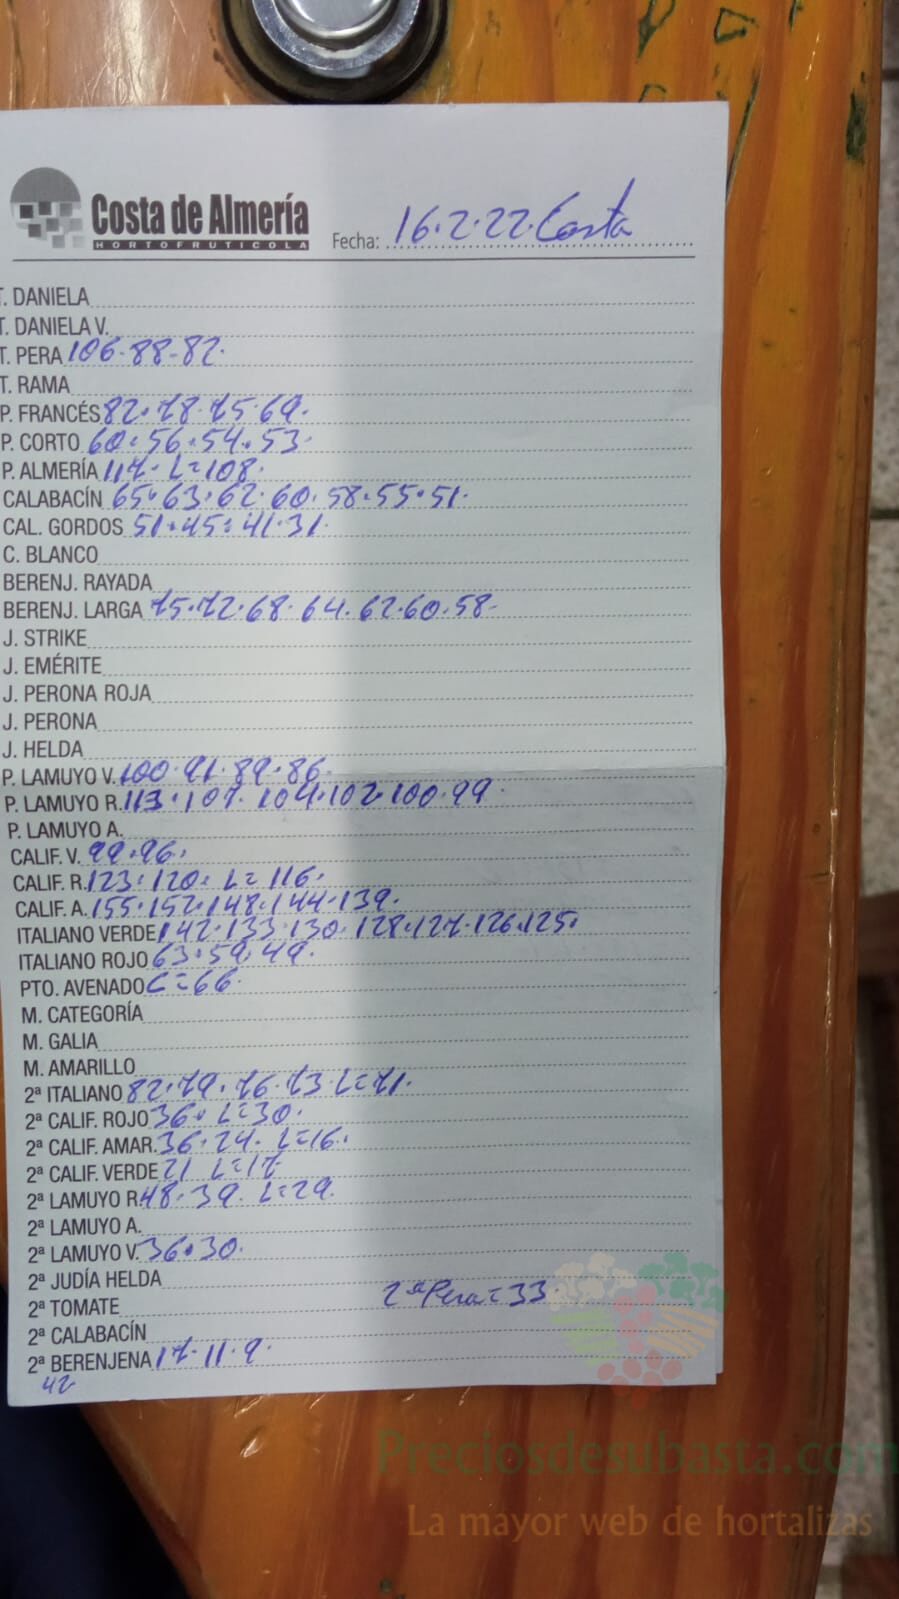 Costa de Almería
HORTOFRUTICOLA
Fecha: 16.2.22. Costa
T. DANIELA
T. DANIELA V.
T. PERA 106.88.82.
T. RAMA
P. FRANCÉS 82.78.75.69.
P. CORTO 60.56.54.53.
P. ALMERÍA 117. L=108.
CALABACÍN 65.63.62.60.58.55.51.
CAL. GORDOS 51.45.41.31.
C. BLANCO
BERENJ. RAYADA
BERENJ. LARGA 75.72.68.64.62.60.58.
J. STRIKE
J. EMÉRITE
J. PERONA ROJA
J. PERONA
J. HELDA
P. LAMUYO V. 100.91.89.86.
P. LAMUYO R. 113.107.104.102.100.99.
P. LAMUYO A.
CALIF. V. 99.96.
CALIF. R. 123.120. L=116.
CALIF. A. 155.152.148.144.139.
ITALIANO VERDE 142.133.130.128.127.126.125.
ITALIANO ROJO 63.59.49.
PTO. AVENADO C=66.
M. CATEGORÍA
M. GALIA
M. AMARILLO
2ª ITALIANO 82.79.76.73 L=71.
2ª CALIF. ROJO 36. L=30.
2ª CALIF. AMAR. 36.24. L=16.
2ª CALIF. VERDE 21 L=17
2ª LAMUYO R. 48.39. L=29.
2ª LAMUYO A.
2ª LAMUYO V. 36.30.
2ª JUDÍA HELDA
2ª TOMATE 2ª Pera=33.
2ª CALABACÍN
2ª BERENJENA 17.11.9.
42
Preciosdesubasta.com
La mayor web de hortalizas